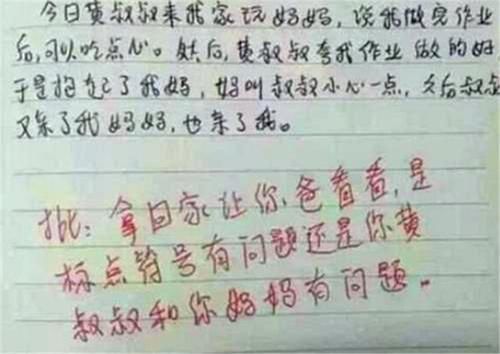 今日黄叔叔来我家玩妈妈,说我做完作业
后,可以吃点心。然后,黄叔叔夸我作业做的好
于是抱起了我妈,妈叫叔叔小心一点,久后叔叔
又亲了我妈妈,也亲了我。
批:拿回家让你爸看看,是
标点符号有问题还是你黄
叔叔和你妈妈有问题.